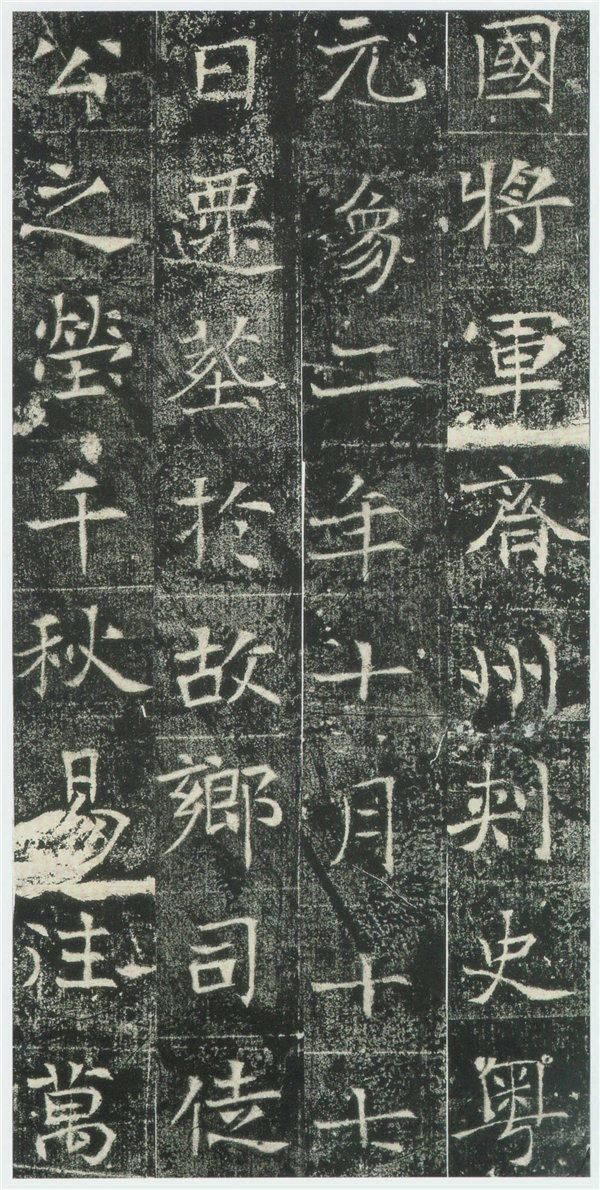 國將軍齊州刾史粤
元象二年十月十七
日遷塟於故鄉司徒
公之塋千秋易往萬